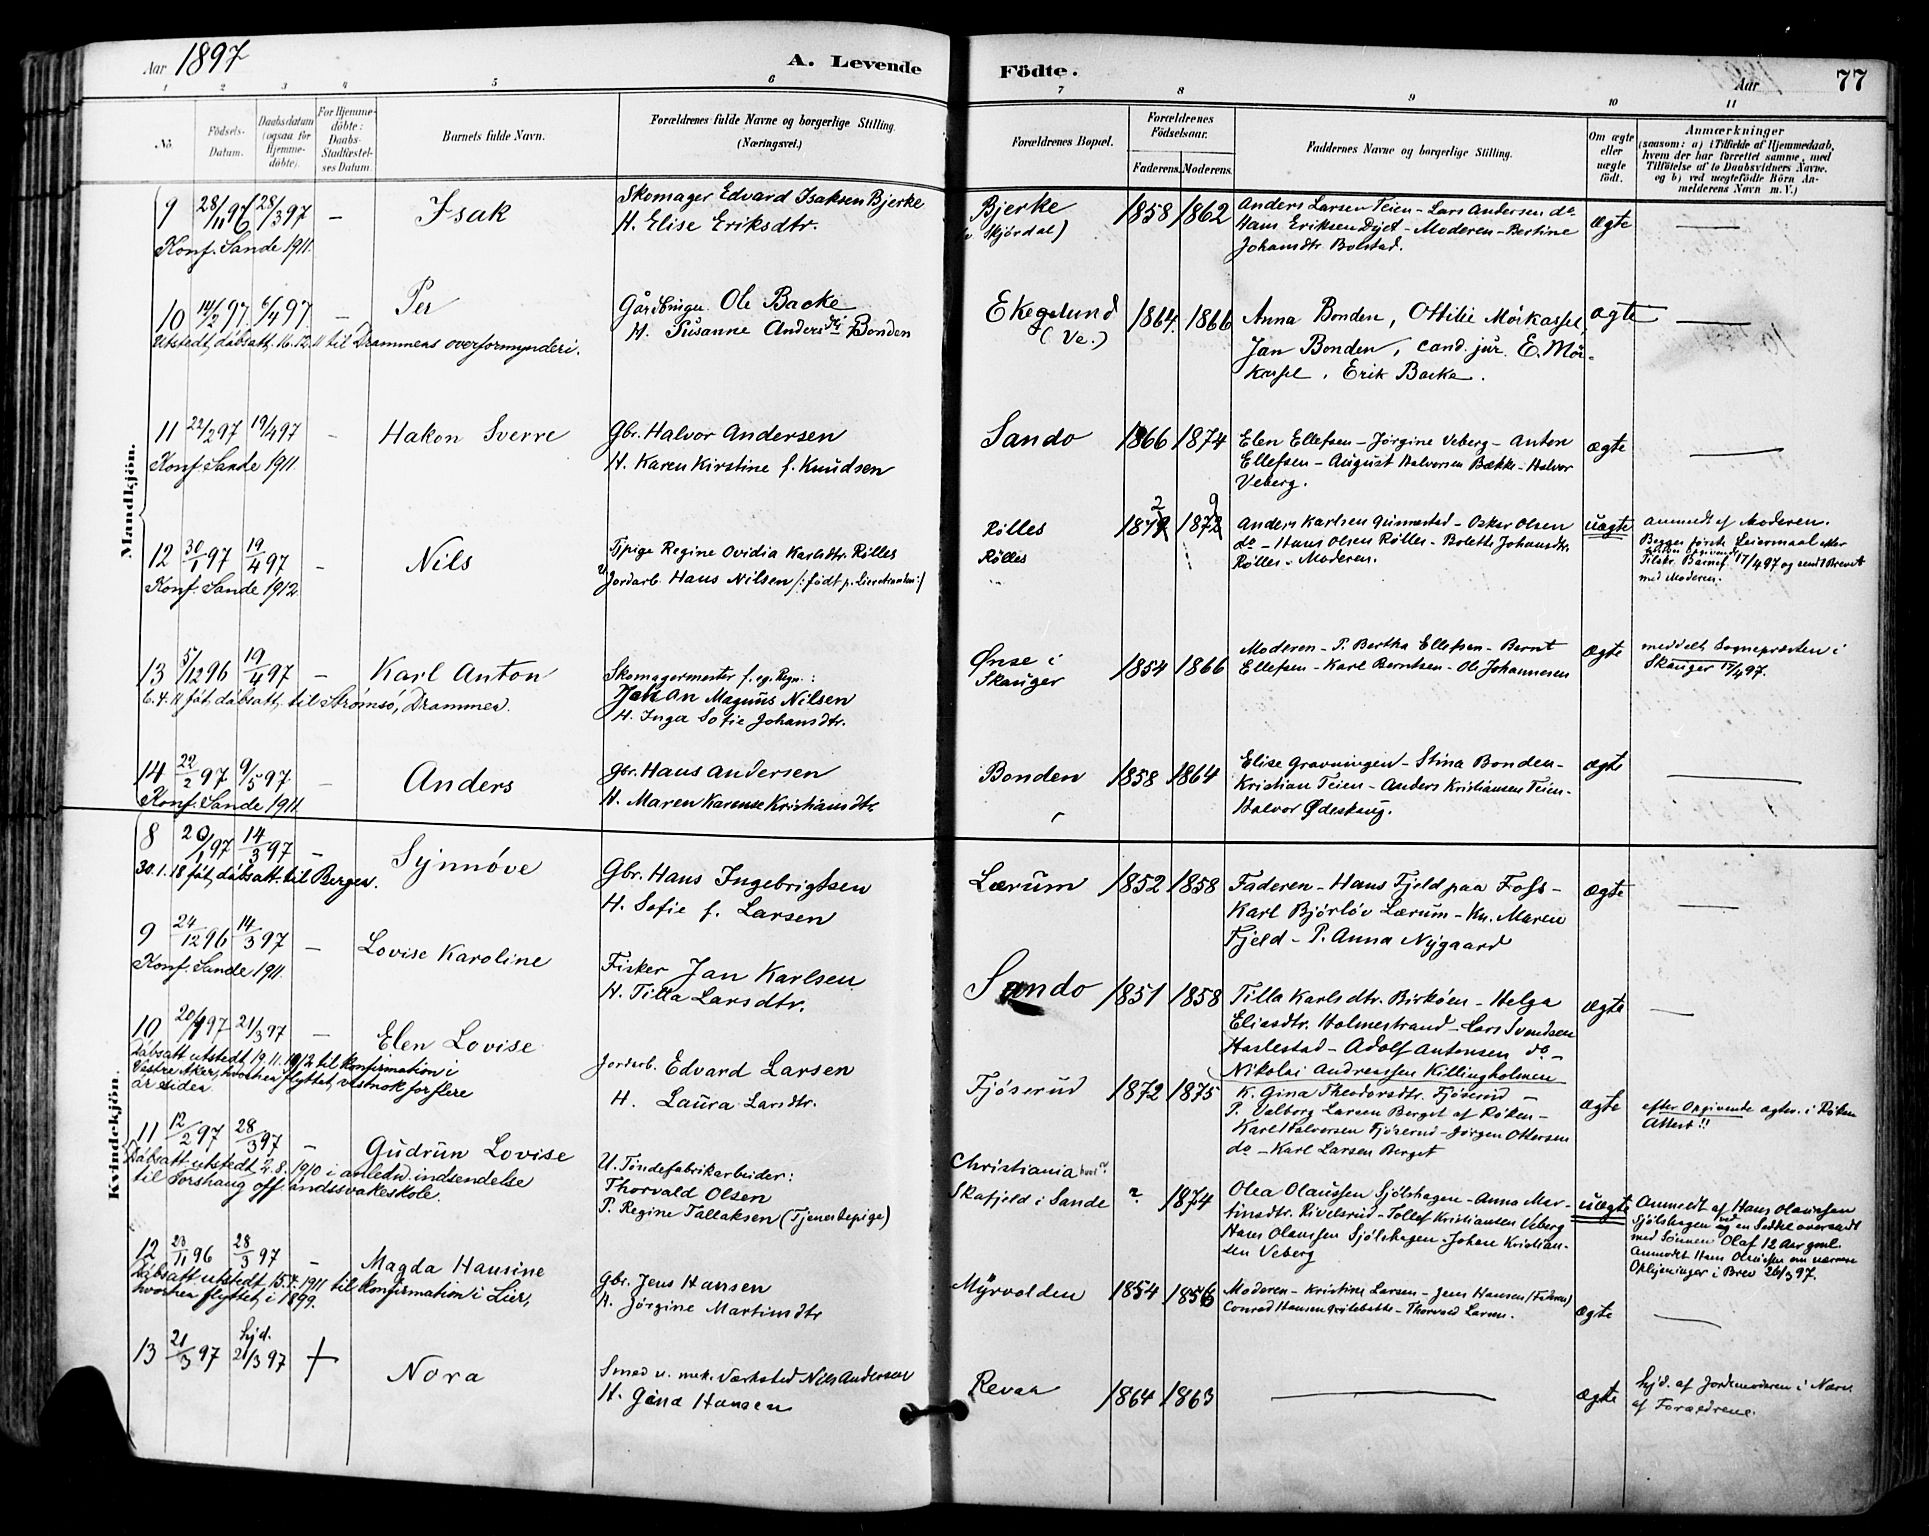 Aar 1897
A. Levende Födte.
Aar 77
1 2 3 4 5 6 7 8 9 10 11
No.
Födsels-Datum.
Daabsdatum (ogsaa for Hjemme-döbte).
For Hjemme-döbte: Daabs-Stadfæstel-ses Datum.
Barnets fulde Navn.
Forældrenes fulde Navne og borgerlige Stilling (Næringsvei.)
Forældrenes Bopæl.
Forældrenes Födselsaar.
Faderens. Moderens.
Faddernes Navne og borgerlige Stilling.
Om ægte eller uægte födt.
Anmærkninger
(saasom: a) i Tilfælde af Hjemmedaab, hvem der har forrettet samme, med Tilföielse af to Daabsvidners Navne. og b) ved uægtefödte Börn An-melderens Navn m. V.)
Mandkjön.
9 28/11 96 28/3 97 – Isak
Skomager Edvard Isaksen Bjerke
H. Elise Eriksdtr.
Bjerke
Skjördal)
1858 1862
Anders Larsen Teien – Lars Andersen do
Hans Eriksen Dyet – Moderen – Bertine
Johansdtr. Bolstad.
ægte
Konf. Sande 1911.
10 14/2 97 6/4 97 – Per
Gårdbruger Ole Backe
H. Susanne Andersdtr Bonden
Ekeslund
(Ve.)
1864 1866
Anna Bonden, Ottilie Mörkassel,
Jan Bonden, cand. jur. E. Mör-
kassel, Erik Backe.
ægte
Utstedt dåbsatt. 16.12.11 til Drammens overformynderi.
11 22/2 97 19/4 97 – Hakon Sverre
Gbr. Halvor Andersen
H. Karen Kirstine f. Knudsen
Sando
1866 1874
Elen Ellefsen – Jörgine Veberg – Anton
Ellefsen – August Halvorsen Bække – Halvor
Veberg.
ægte
Konf. Sande 1911.
12 30/1 97 19/4 97 – Nils
Tjpige Regine Ovidia Karlsdtr. Rölles
Jordarb. Hans Nilsen /: født p. Lierstranden :/
Rölles
Rölles
1872 1879
Anders Karlsen Gunnestad – Oskar Olsen
do – Hans Olsen Rölles – Bolette Johansdtr.
Rölles – Moderen.
uægte
anmeldt af Moderen.
Begges förste Leiermaal efter
17/4 97 og sendt Brevet
med Moderen.
Konf. Sande 1912
13 5/12 96 19/4 97 – Karl Anton
Skomagermester f. eg. Regn.:
Johan Magnus Nilsen
H. Inga Sofie Johansdtr.
Önse i
Skauger
1854 1866
Moderen – P. Bertha Ellefsen – Bernt
Ellefsen – Karl Berntsen – Ole Johannesen
ægte
meddelt Sognepræsten i
Skauger 19/4 97.
6.4.11 føt, dåbsatt. til Strømsø, Drammen.
14 22/2 97 9/5 97 – Anders
Gbr. Hans Andersen
H. Maren Karense Kristiansdtr.
Bonden
1858 1864
Elise Gravningen – Stina Bonden –
Kristian Teien – Anders Kristiansen Teien –
Halvor Ødeskaug.
ægte
Konf. Sande 1911
Kvindekjön.
8 20/1 97 14/3 97 – Synnöve
Gbr. Hans Ingebrigtsen
H. Sofie f. Larsen
Lærum
1852 1858
Faderen – Hans Fjeld paa Foss –
Karl Björlöv Lærum – Kn. Maren
Fjeld – P. Anna Nygaard
ægte
30.1.18 føt, dåbsatt. til Bergen.
9 24/12 96 14/3 97 – Lovise Karoline
Fisker Jan Karlsen
H. Tilla Larsdtr.
Sando
1851 1858
Tilla Karlsdtr. Birköen – Helga
Eliasdtr. Holmestrand – Lars Svendsen
Harlestad – Adolf Antonsen do –
Nikolai Andreassen Killingholmen
ægte
Konf. Sande 1911.
10 20/1 97 21/3 97 – Elen Lovise
Jordarb. Edvard Larsen
H. Laura Larsdtr.
Fjöserud
1872 1875
K. Gina Theodorsdtr. Fjöserud –
P. Valborg Larsen Berget af Röken –
Karl Halvorsen Fjöserud – Jörgen Ottersen
do – Karl Larsen Berget
ægte
efter Opgivende ægtev. i Röken
Attest!!
Dåbsatt utstedt 19.11.1912 til konfirmation i
Vestre Aker, hvorhen flyttet, vistnok for flere
år siden
11 12/2 97 28/3 97 – Gudrun Lovise
U. Töndefabrikarbeider:
Thorvald Olsen
P. Regine Tallaksen (Tjenestepige)
Christiania
Skafjeld i Sande
? 1874
Olea Olaussen Sjölshagen – Anna Mar-
tinsdtr. Rivelsrud – Tollef Kristiansen Veberg
Hans Olaussen Sjölshagen – Johan Kristian-
sen Veberg
uægte
Anmeldt af Hans Olaussen
Sjölshagen ved en Seddel oversendt
med Sönnen Olaf 12 Aar gml.
Anmodet Hans Olaussen om nærmere
Oplysninger i Brev 26/3 97.
Dåbsatt utstedt 2.8.1910 i anledn. indsendelse
til Torshaug off. åndssvakeskole.
12 23/11 96 28/3 97 – Magda Hansine
Gbr. Jens Hansen
H. Jörgine Martinsdtr
Myrvolden
1854 1856
Moderen – Kristine Larsen – Jens Hansen (Faderen)
Conrad Hansen – Thorvald Larsen.
ægte
Dåbsatt. utstedt 15.7.1911 til konfirmation i Lier,
hvorhen flyttet i 1899.
13 21/3 97 hjd. 21/3 97 + Nora
Smed v. mek. Værksted Nils Andersen
H. Gina Hansen
Revaa
1864 1863
ægte
hjd. af Jordemoderen i Nærv.
af Forældrene.